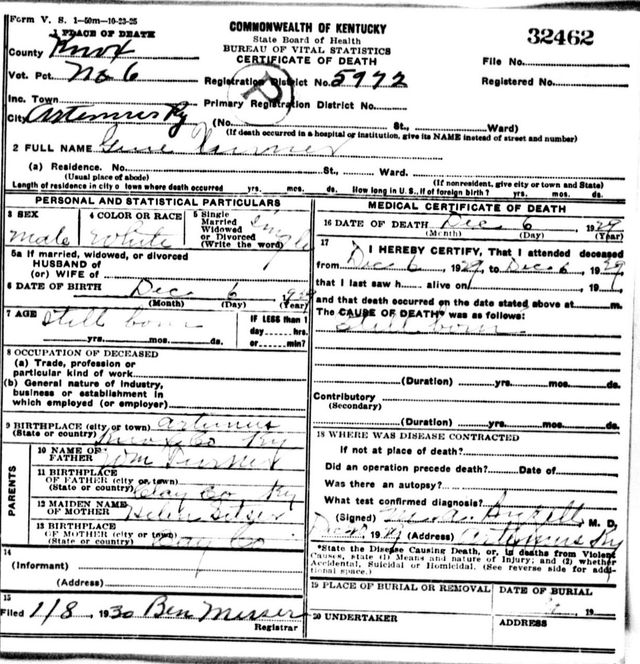 Form V. S. 1-50m-10-23-25
1 PLACE OF DEATH
County Knox
Vot. Pct. No 6
Inc. Town
City Artemus Ky
COMMONWEALTH OF KENTUCKY
State Board of Health
BUREAU OF VITAL STATISTICS
CERTIFICATE OF DEATH
Registration District No. 5972
Primary Registration District No.
32462
File No.
Registered No.
(No. St., Ward)
(If death occurred in a hospital or institution, give its NAME instead of street and number)
2 FULL NAME Gene Turner
(a) Residence. No. St., Ward.
(Usual place of abode) (If nonresident, give city or town and State)
Length of residence in city o town where death occurred yrs. mos. ds. How long in U. S., if of foreign birth? yrs. mos. ds.
PERSONAL AND STATISTICAL PARTICULARS
3 SEX male
4 COLOR OR RACE White
5 Single Married Widowed or Divorced (Write the word) Single
5a If married, widowed, or divorced
HUSBAND of
(or) WIFE of
6 DATE OF BIRTH Dec 6 929
(Month) (Day) (Year)
7 AGE still born
yrs. mos. ds.
IF LESS than 1
day hrs.
or min?
8 OCCUPATION OF DECEASED
(a) Trade, profession or
particular kind of work
(b) General nature of industry,
business or establishment in
which employed (or employer)
9 BIRTHPLACE (city or town) Artemus
(State or country) Knox Co Ky
PARENTS
10 NAME OF
FATHER Tom Turner
11 BIRTHPLACE
OF FATHER (city or town)
(State or country) Clay Co Ky
12 MAIDEN NAME
OF MOTHER
13 BIRTHPLACE
OF MOTHER (city or town)
(State or country) Clay Co
14
(Informant)
(Address)
15
Filed 1/8 1930 Ben Messer
Registrar
MEDICAL CERTIFICATE OF DEATH
16 DATE OF DEATH Dec 6 1929
(Month) (Day) (Year)
17
I HEREBY CERTIFY, That I attended deceased
from Dec 6, 1929, to Dec 6, 1929
that I last saw h alive on , 19
and that death occurred on the date stated above at m.
The CAUSE OF DEATH* was as follows:
still born
(Duration) yrs. mos. ds.
Contributory
(Secondary)
(Duration) yrs. mos. ds.
18 WHERE WAS DISEASE CONTRACTED
If not at place of death?
Did an operation precede death? Date of
Was there an autopsy?
What test confirmed diagnosis?
(Signed) M. D.
19 (Address) Artemus Ky
*State the Disease Causing Death, or, in deaths from Violent
Causes, state (1) Means and nature of Injury; and (2) whether
Accidental, Suicidal or Homicidal. (See reverse side for addi-
tional space.)
19 PLACE OF BURIAL OR REMOVAL
DATE OF BURIAL
19
20 UNDERTAKER
ADDRESS